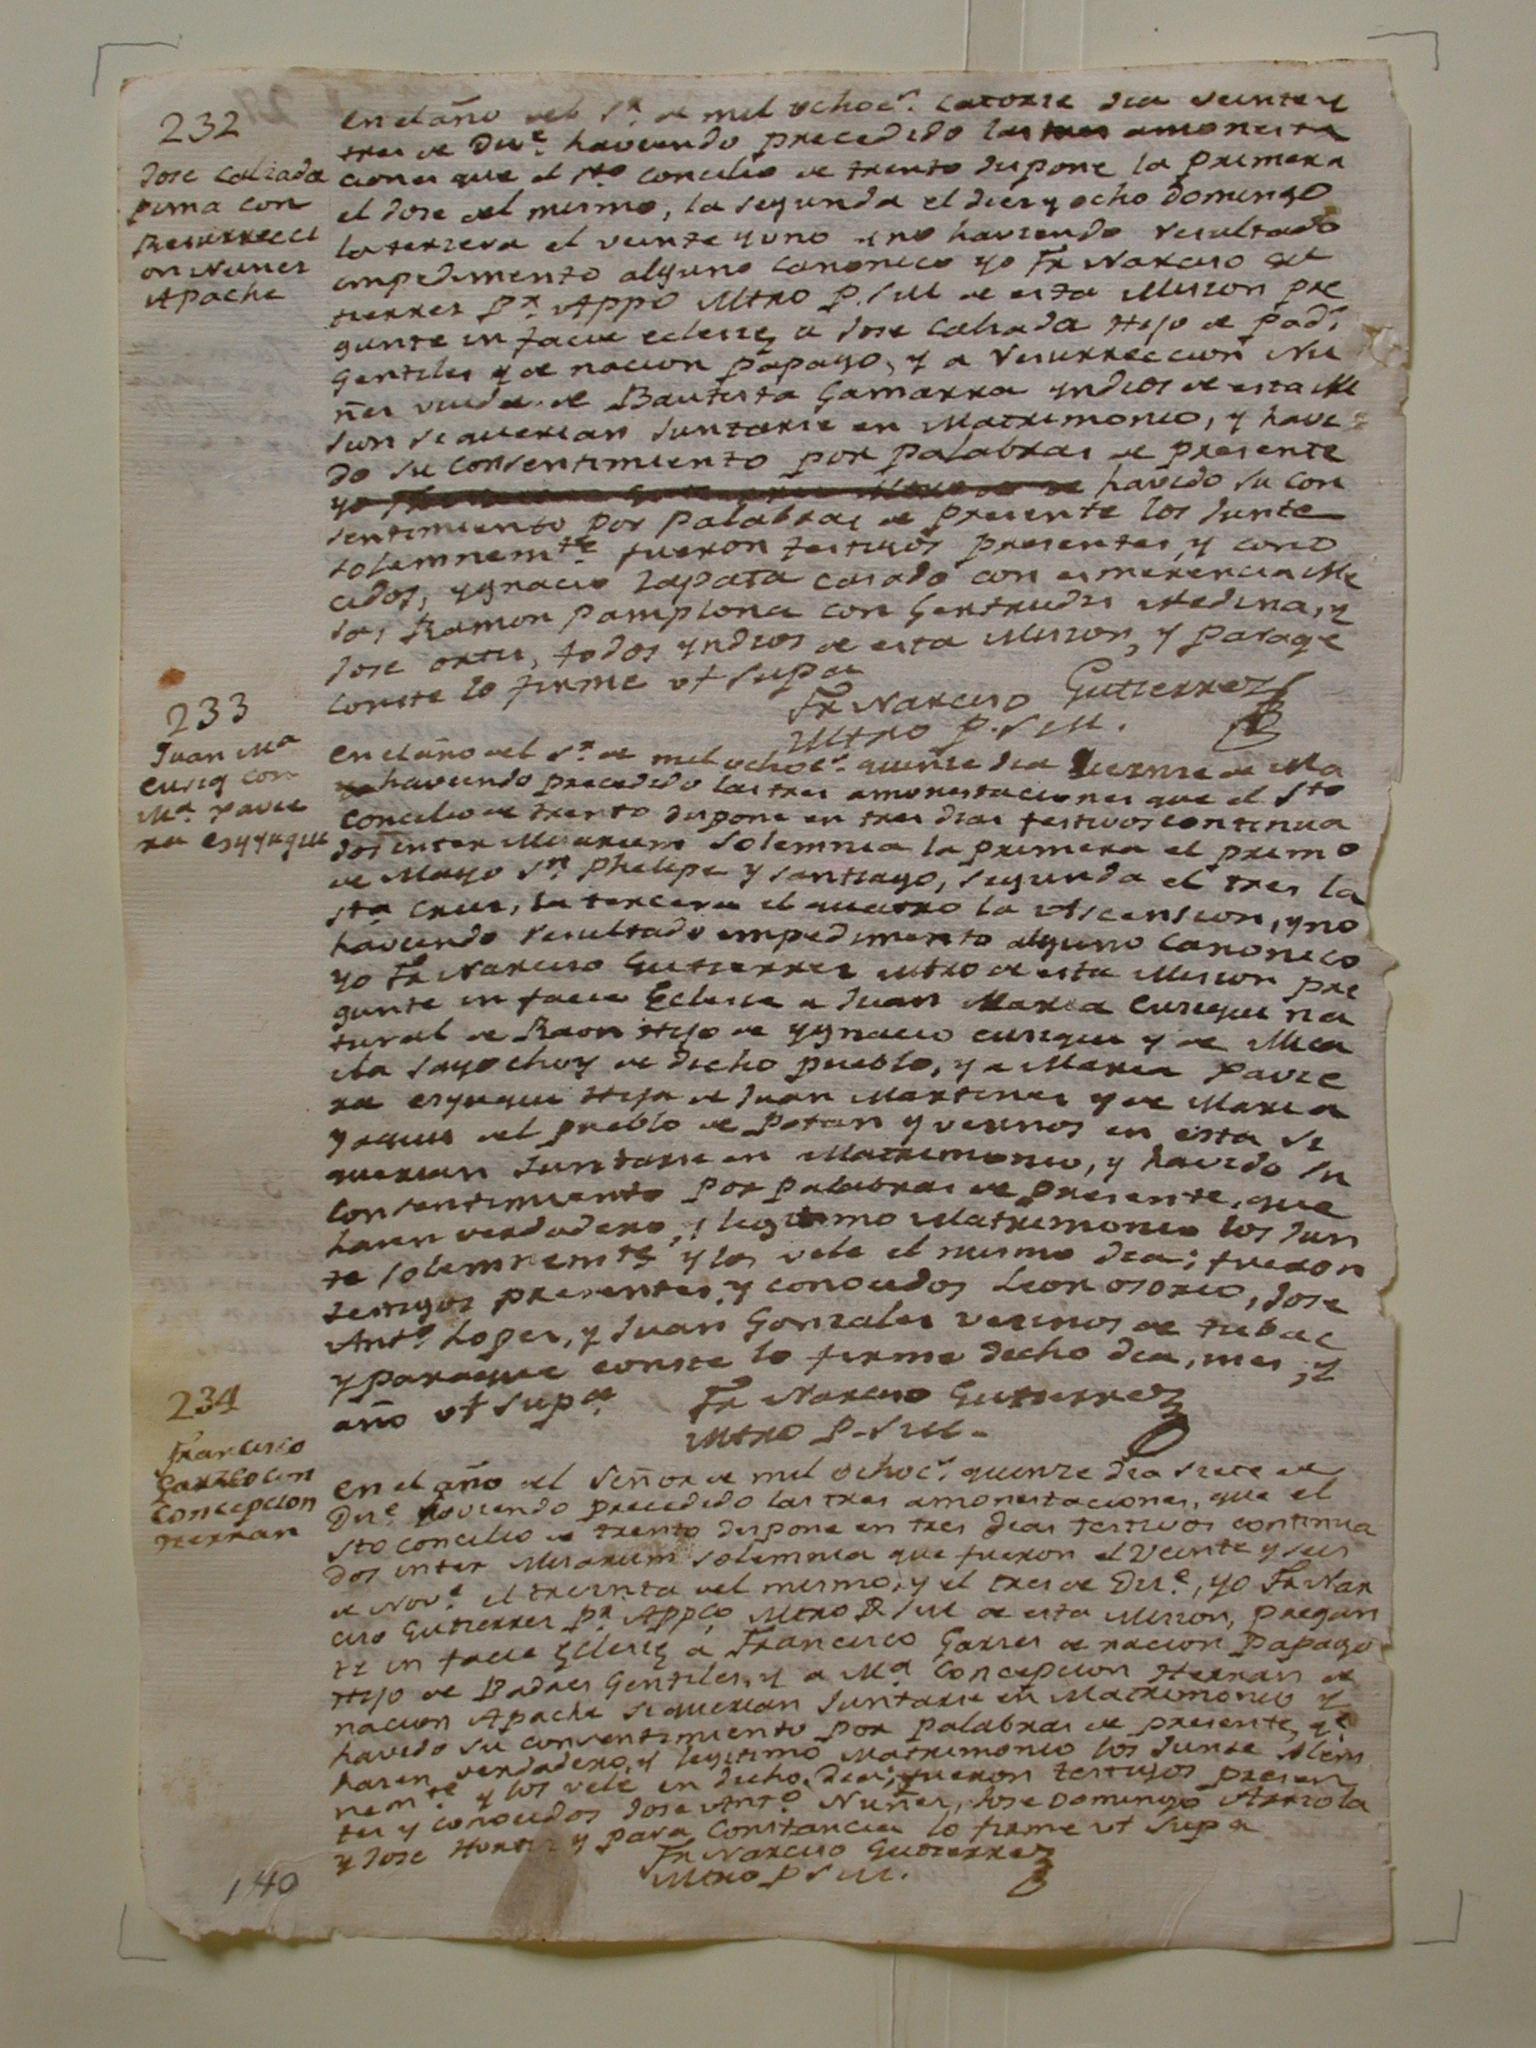 232
Jose Calzada
pima con
Resurrecci
on Nunes
Apache
en el año del Sr. de mil ochocs. catorse dia veinte y
tres de Dice. haviendo precedido las tres amonesta
ciones que el Sto concilio de trento dispone la primera
el dose del mismo, la segunda el dies y ocho Domingo
la tersera el veinte y uno y no haviendo resultado
impedimento alguno canonico yo Fr Narciso Gu
tierres Pr. Appo Mtro P. S M de esta Mision pre
gunte in facie eclesie a Jose Calsada Hijo de Pads
Gentiles y de nacion papago, y a Resurreccion Nu
ñes viuda de Bautista Gamarra yndios de esta Mi
sion si querian Juntarse en Matrimonio, y havi
do su consentimiento por palabras de presente
havido su con
sentimiento por palabras de presente los Junte
solemnemte fueron testigos presentes, y cono
cidos, ygnacio Zapata casado con esmerencia Me
sa, Ramon Pamplona con Gertrudis Medina, y
Jose ortis, todos yndios de esta Mision, y paraqe
conste lo firme ut Supa
Fr Narciso Gutierrez
Mtro P. S M.
233
Juan Ma
Cusiq con
Ma. Xavie
ra esyyuqui
en el año del Sr. de mil ochocs. quinse dia de Ma
yo haviendo precedido las tres amonestaciones que el Sto
Concilio de trento dispone en tres dias festivos continua
dos inter Misarum Solemnia la primera el primo
de Mayo Sn Phelipe y Santiago, segunda el tres la
Sta Crus, la tercera el quatro la Ascension, y no
haviendo resultado impedimento alguno canonico
yo Fr Narciso Gutierres Mtro de esta Mision pre
gunte in facie Eclesie a Juan Maria Cusiqui na
tural de Raon Hijo de ygnacio cusiqui y de Mica
ila Sayochoy de dicho pueblo, y a Maria Xavie
ra esyuqui Hija de Juan Martines y de Maria
yaquis del pueblo de Potan y vesinos en esta si
querian Juntarse en Matrimonio, y havido su
consentimiento por palabras de presente, que
hasen verdadero, i legitimo Matrimonio los Jun
te solemnemte y los vele el mismo dia; fueron
testigos presentes, y conocidos Leon osorio, Jose
Anto. Lopes, y Juan Gonzales vesinos de tubac
y paraque conste lo firme dicho dia, mes, y
año ut Supa
Fr Narciso Gutierrez
Mtro P. S M.
234
Francisco
Garzes con
Concepcion
Herran
en el año del Señor de mil ochocs. quinze dia siete de
Dise. haviendo precedido las tres amonestaciones, que el
Sto concilio de trento dispone en tres dias festivos continua
dos inter Misarum Solemnia que fueron el Veinte y seis
de Nove. el treinta del mismo, y el tres de Dise., yo Fr Nar
ciso Gutierres Pr. Appco, Mtro P. S M de esta Mision, pregun
te in facie Eclesie a Francisco Garses de nacion Papago
Hijo de Padres Gentiles, y a Ma Concepcion Herran de
nacion Apache si querian Juntarse en Matrimonio y
havido su consentimiento por palabras de presente qe
hasen verdadero, y legitimo Matrimonio los Junte solem
nemte. y los vele en dicho dia; fueron testigos presen
tes y conocidos Jose Anto. Nuñes, Jose Domingo Arriola
y Jose Hortis y para Constancia lo firme ut Supa
Fr Narciso Gutierrez
Mtro P S M.
140